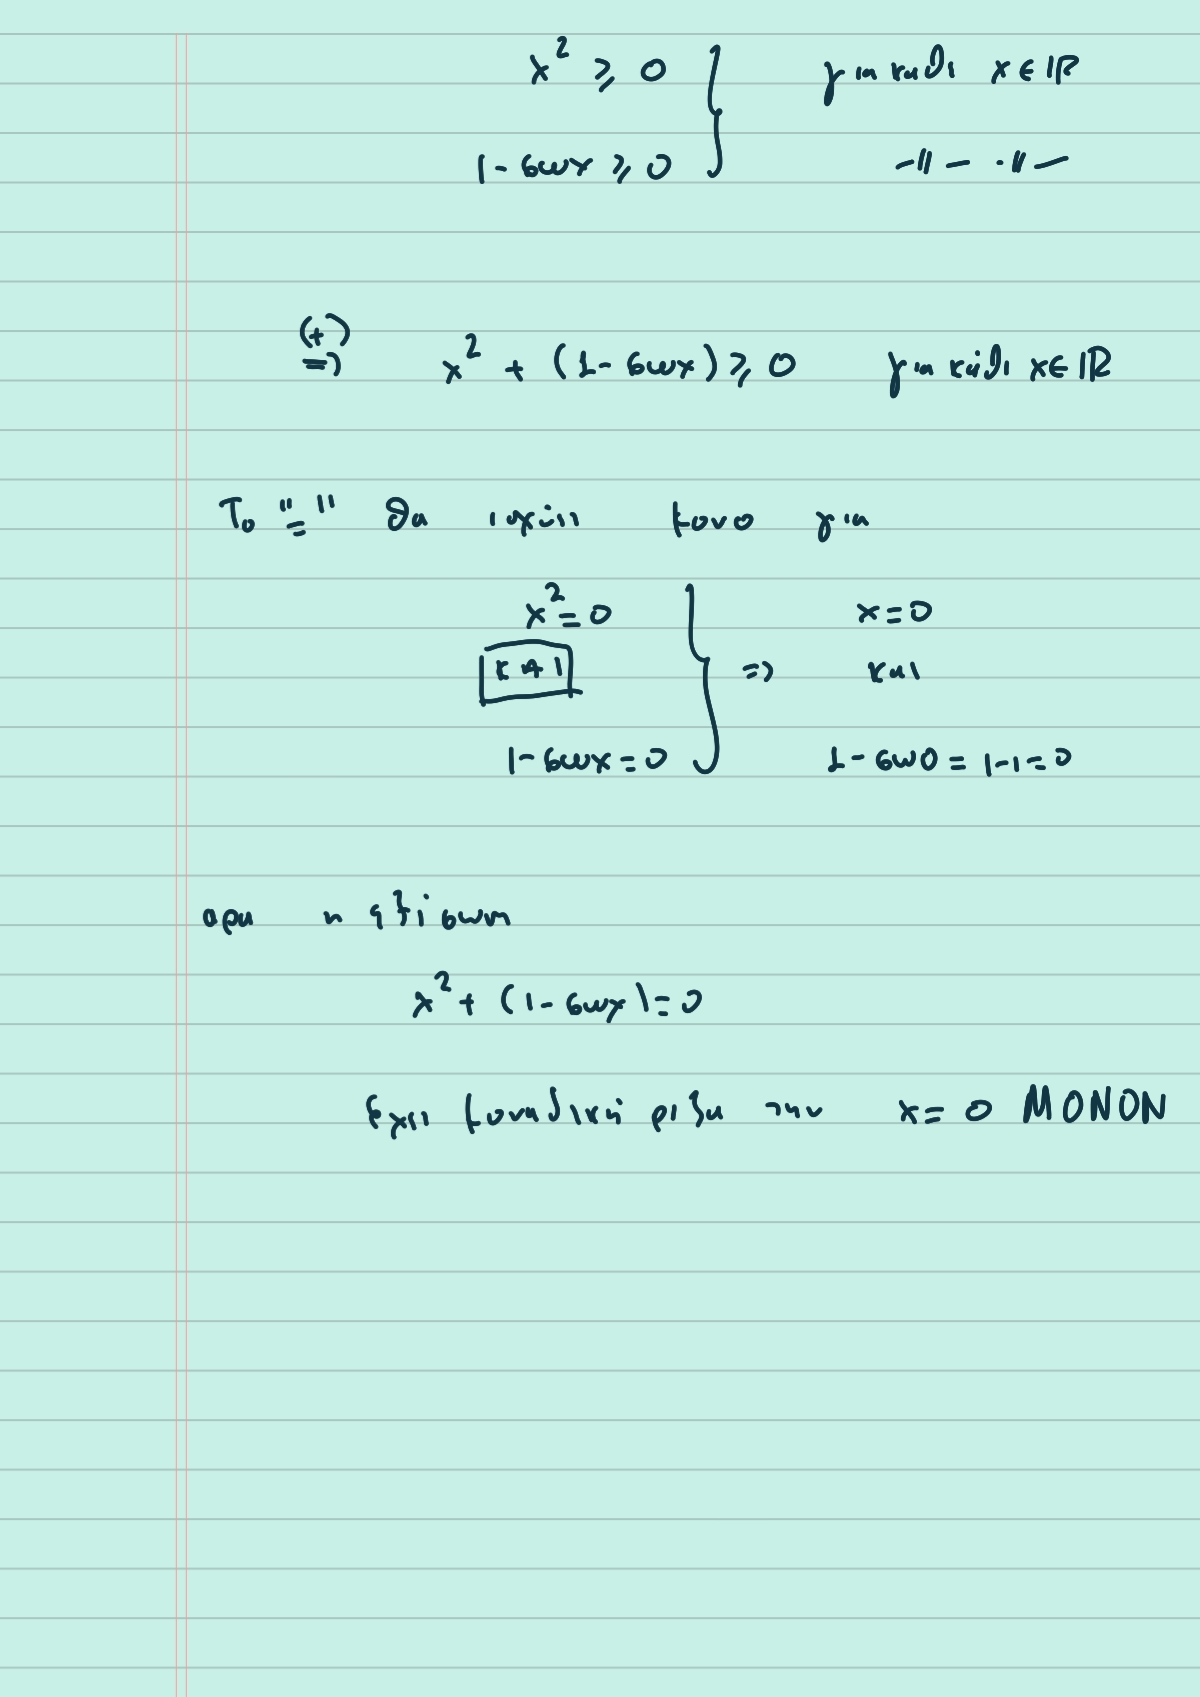 x² ⩾ 0 } για κάθε x ∈ ℝ
1 - συνx ⩾ 0 } -//- -//-
(+)
⇒ x² + (1 - συνx) ⩾ 0 για κάθε x ∈ ℝ
Το "=" θα ισχύει μόνο για
x² = 0 } x = 0
και ⇒ και
1 - συνx = 0 } 1 - συν0 = 1 - 1 = 0
αρα η εξίσωση
x² + (1 - συνx) = 0
Εχει μοναδική ρίζα την x = 0 ΜΟΝΟΝ